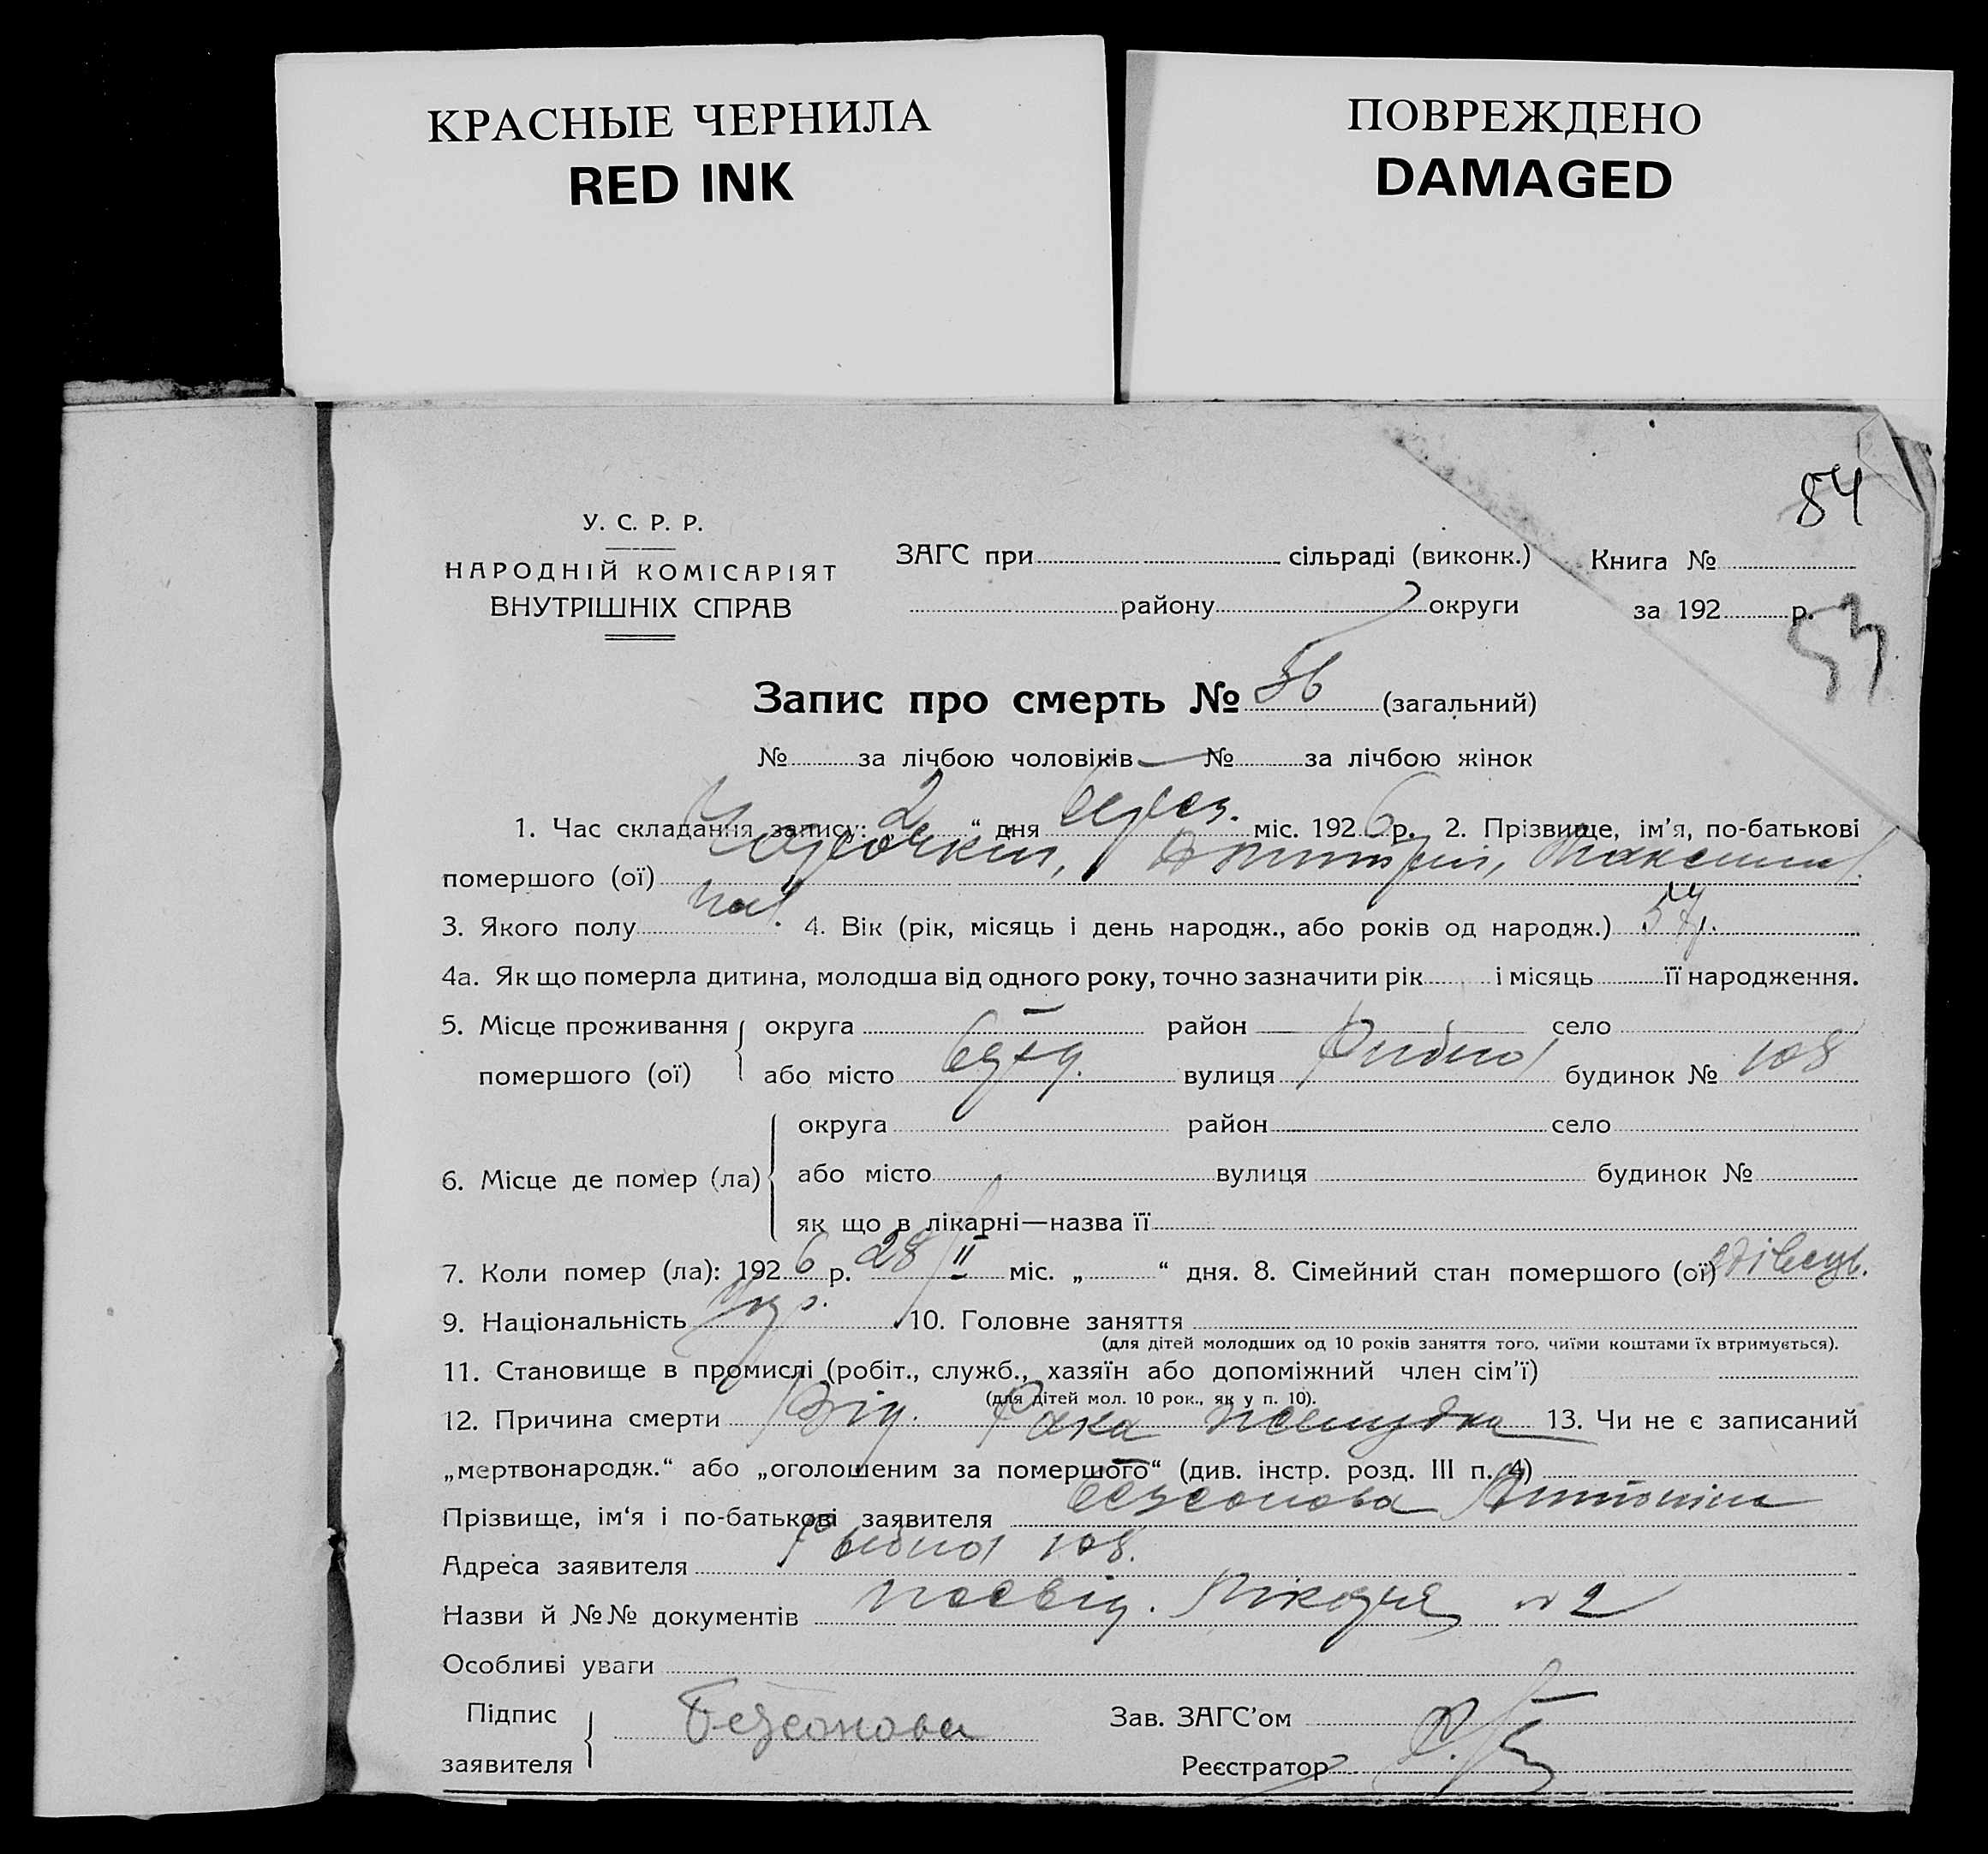 КРАСНЫЕ ЧЕРНИЛА
RED INK
ПОВРЕЖДЕНО
DAMAGED
84
У. С. Р. Р.
НАРОДНІЙ КОМІСАРІЯТ
ВНУТРІШНІХ СПРАВ
ЗАГС при сільраді (виконк.)
району округи
Книга №
за 192 р.
53
Запис про смерть № 56 (загальний)
№ за лічбою чоловіків — № за лічбою жінок
1. Час складання запису: „ 2 “ дня берез. міс. 192 6 р. 2. Прізвище, ім’я, по-батькові
помершого (ої)
3. Якого полу чол. 4. Вік (рік, місяць і день народж., або років од народж.) 57 р.
4а. Як що померла дитина, молодша від одного року, точно зазначити рік і місяць її народження.
5. Місце проживання помершого (ої) округа — район село
або місто вулиця Рибна будинок № 108
6. Місце де помер (ла) округа район село
або місто вулиця будинок №
як що в лікарні—назва її
7. Коли помер (ла): 192 6 р. 28/II міс. „ “ дня. 8. Сімейний стан помершого (ої) удівець.
9. Національність Укр. 10. Головне заняття
(для дітей молодших од 10 років заняття того, чиїми коштами їх втримується).
11. Становище в промислі (робіт., служб., хазяїн або допоміжний член сім’ї)
(для дітей мол. 10 рок., як у п. 10).
12. Причина смерти Від. Рака желудка 13. Чи не є записаний
„мертвонародж.“ або „оголошеним за помершого“ (див. інстр. розд. III п. 4)
Прізвище, ім‘я і по-батькові заявителя Безсонова Антоніна
Адреса заявителя Рыбна 108.
Назви й №№ документів посвід. Лікаря № 2
Особливі уваги
Підпис заявителя Безсонова
Зав. ЗАГС’ом
Реєстратор